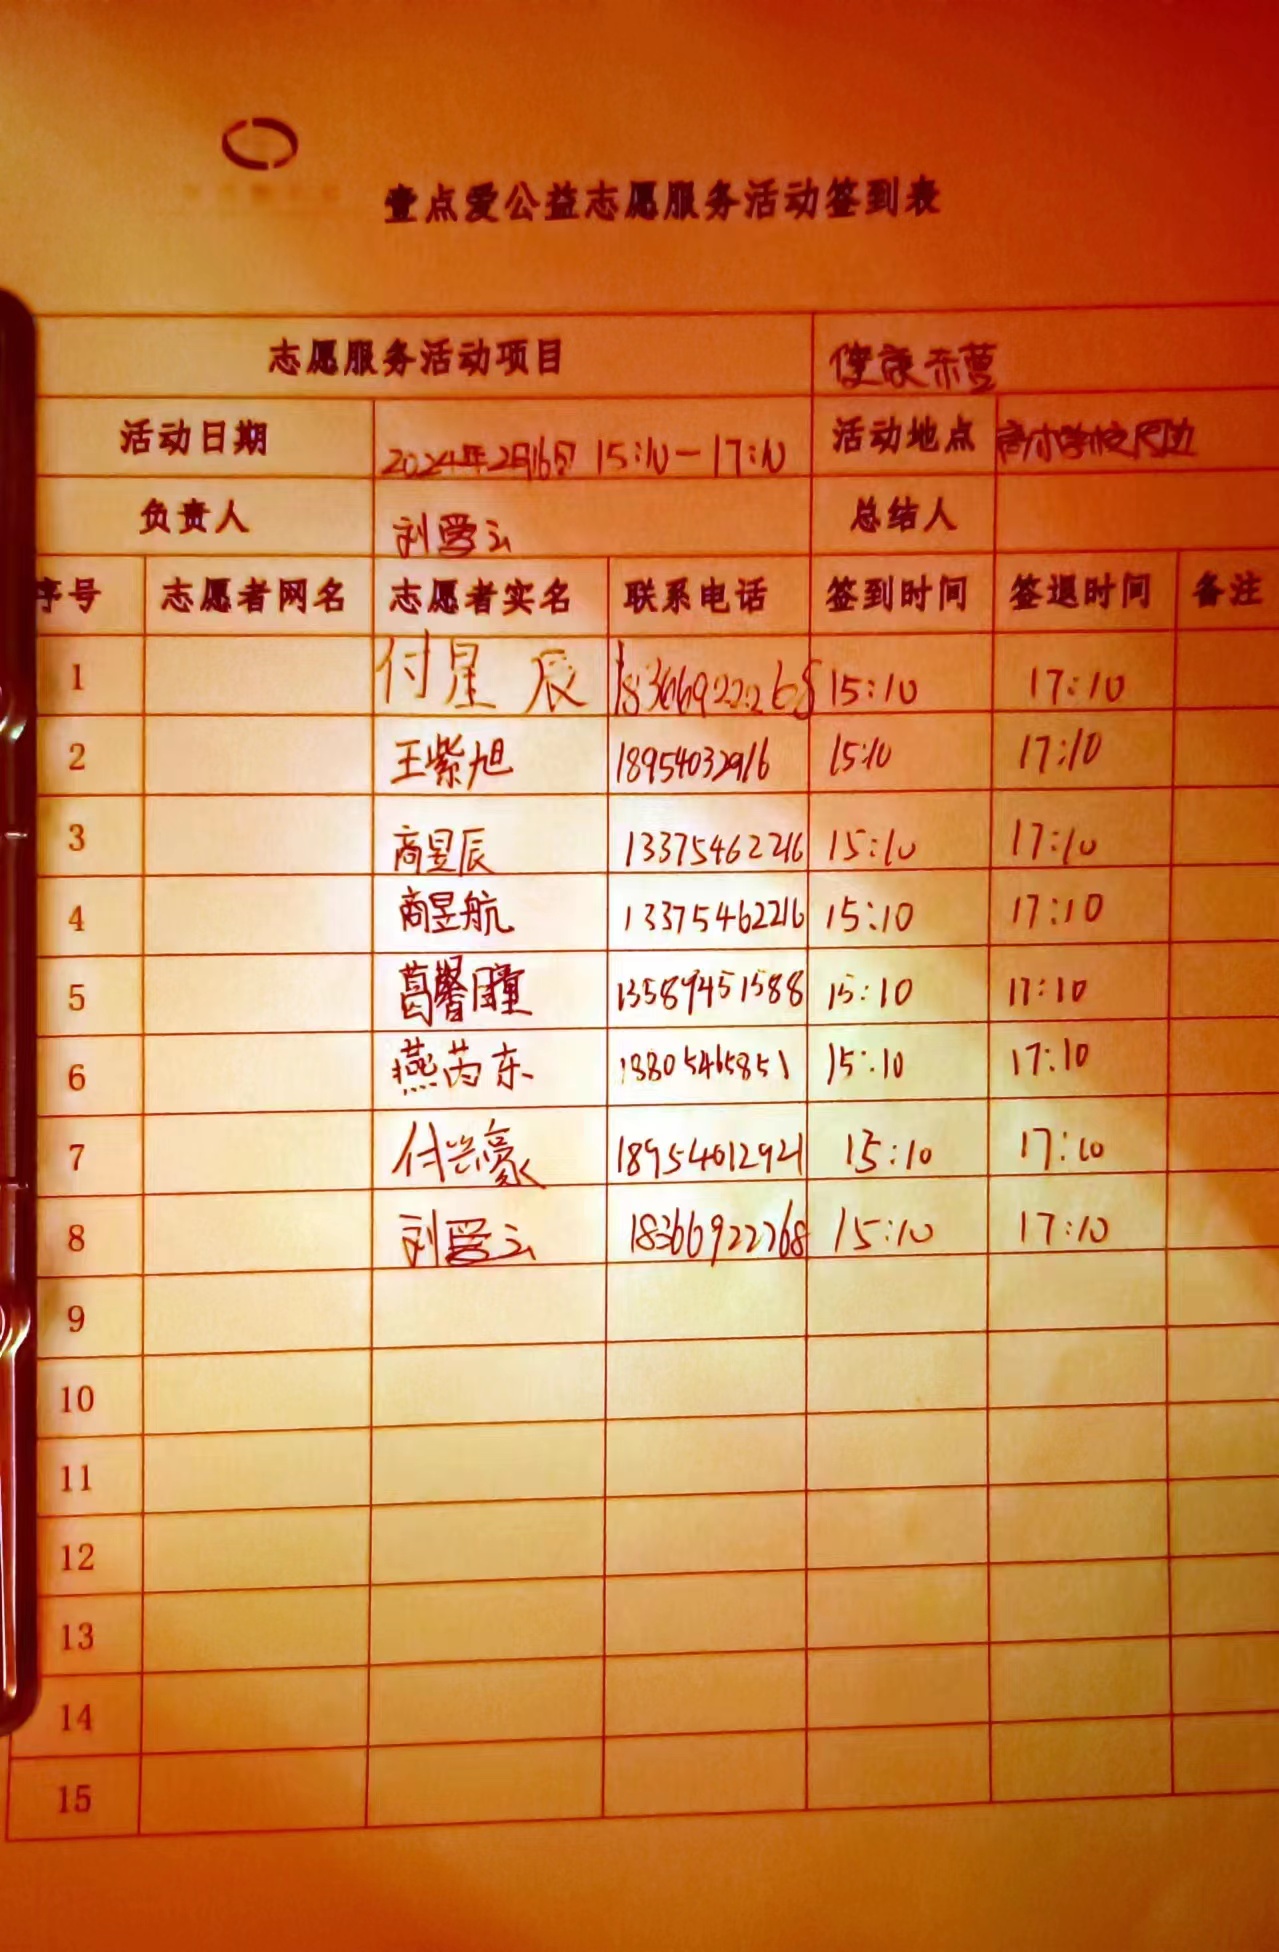 壹点爱公益志愿服务活动签到表
志愿服务活动项目
活动日期 2024年2月16日 15:10-17:10 活动地点
负责人 刘 云 总结人
序号 志愿者网名 志愿者实名 联系电话 签到时间 签退时间 备注
1 付星辰 18366922268 15:10 17:10
2 王紫旭 18954032916 15:10 17:10
3 商昱辰 13375462216 15:10 17:10
4 商昱航 13375462216 15:10 17:10
5 葛馨瞳 13589451588 15:10 17:10
6 燕芮东 13805465851 15:10 17:10
7 付兴豪 18954012921 15:10 17:10
8 刘 云 18366922268 15:10 17:10
9
10
11
12
13
14
15